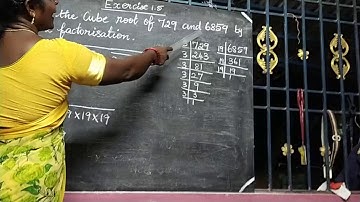 Exercise 1.5
the Cube root of 729 and 6859 by
factorisation.
3 729
3 243
3 81
3 27
3 9
3 3
1
19 6859
19 361
19 19
1
×19×19